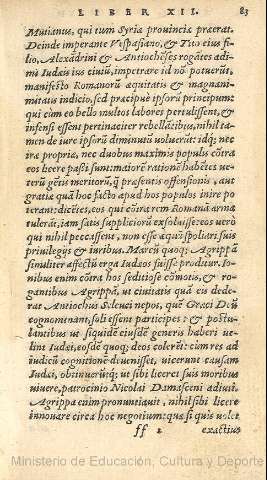 LIBER XII. 83
Mutianus, qui tum Syriæ prouinciæ præerat.
Deinde imperante Vespasiano, & Tito eius fi-
lio, Alexādrini & Antiochēses rogātes adi-
mi Iudæis ius ciuiū, impetrare id nō potuerūt,
manifesto Romanorū æquitatis & magnani-
mitatis indicio, sed præcipuè ipsorū principum:
qui cùm eo bello multos labores pertulissent, &
infensi essent pertinaciter rebellātibus, nihil ta-
men de iure ipsorū diminutū voluerūt: idq; nec
iræ propriæ, nec duobus maximis populis cōtra
eos licere passi sunt: maiorē rationē habētes ve-
terū gētis meritorū, q̄ præsentis offensionis, aut
gratiæ quā hoc facto apud hos populos inire po-
terant: dicētes, eos qui cōtra rem Romanā arma
tulerāt, iam satis suppliciorū exsoluisse: eos verò
qui nihil peccassent, non esse æquū spoliari suis
priuilegijs & iuribus. Marcū quoq; Agrippā
similiter affectū erga Iudæos fuisse prodītur. Io-
nibus enim cōtra hos seditiosè cōmotis, & ro-
gantibus Agrippā, ut ciuitatis quā eis dede-
rat Antiochus Seleuci nepos, quē Græci Deū
cognominant, soli essent participes: & postu-
lantibus ut siquidē eiusdē generis haberi ue-
lint Iudæi, eosdē quoq; deos colerēt: cùm res ad
iudicū cognitionē deuenisset, uicerunt causam
Iudæi, obtinuerūtq; ut sibi liceret suis moribus
uiuere, patrocinio Nicolai Damasceni adiuti.
Agrippa enim pronuntiauit, nihil sibi licere
innouare circa hoc negotium: quæ si quis uolet
ff 2 exactius
Ministerio de Educación, Cultura y Deporte